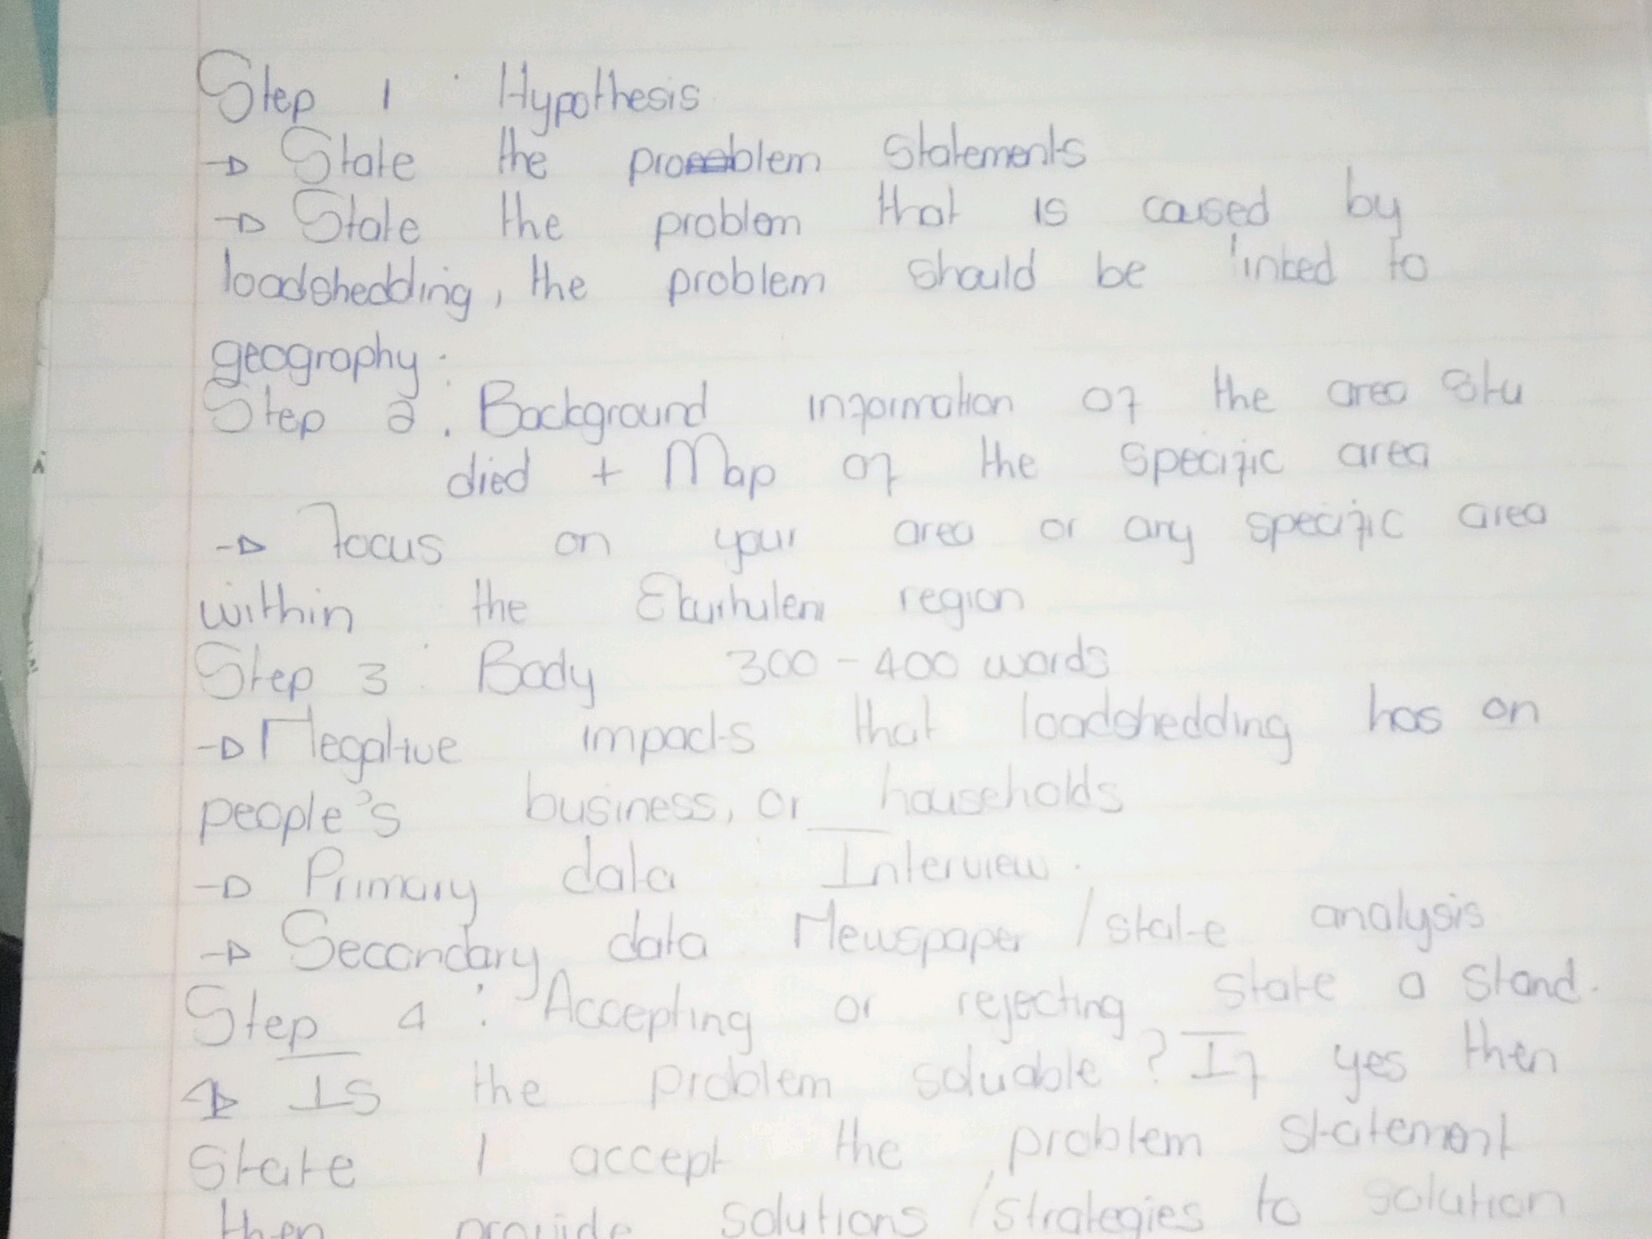 Step 1 : Hypothesis
→ State the problem statements
→ State the problem that is caused by
loadshedding, the problem should be linked to
geography.
Step 2 : Background information of the area stu
died + Map of the specific area
→ Focus on your area or any specific area
within the Ekurhuleni region
Step 3 : Body 300 - 400 words
→ Negative impacts that loadshedding has on
people's business, or households
→ Primary data : Interview.
→ Secondary data Newspaper / state analysis
Step 4 : Accepting or rejecting state a stand.
→ Is the problem soluable? If yes then
state I accept the problem statement
then provide solutions / strategies to solution